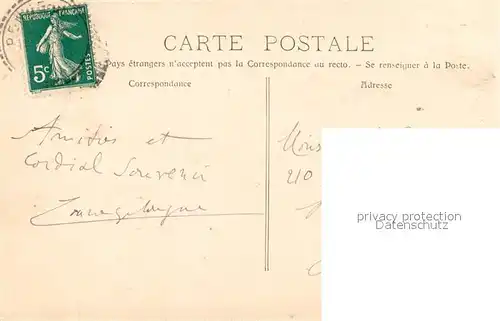 RÉPUBLIQUE FRANÇAISE
5c
POSTES
CARTE POSTALE
Pays étrangers n'acceptent pas la Correspondance au recto. - Se renseigner à la Poste.
Correspondance
Adresse
Amitiés et
Cordial Souvenir
Mons
210
privacy protection
Darmstatic.com